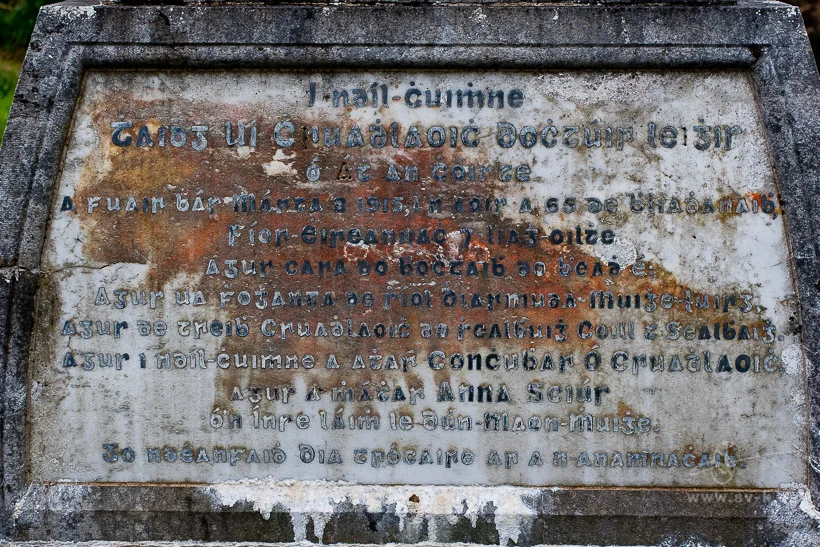 I nḋíl-ċuiṁne
Taiḋg Uí Ċruaḋlaoiċ doċtúir leiġir
ó Át an Ċoirte
A fuair bár Márta 3 1915, i n-doir a 65 de bliaḋanaiḃ.
Fíor-Éireannaċ ⁊ liaġ-oilte
Agur cara do boċtaiḃ do beaḋ é.
Agur ua foġanta de ríol Diarmuda Muiġe-luirg.
Agur de treiḃ Cruaḋlaoiċ do realḃuiġ Coill t Sealḃaig.
Agur i nḋíl-ċuiṁne a aṫar Conċuḃar Ó Cruaḋlaoiċ.
Agur a ṁáṫar Anna Sciúr
ó'n Inre láiṁ le dún-Maon-Muiġe.
Go ndéanfaiḋ Dia trócaire ar a n-anamnaċaiḃ.
www.sv-